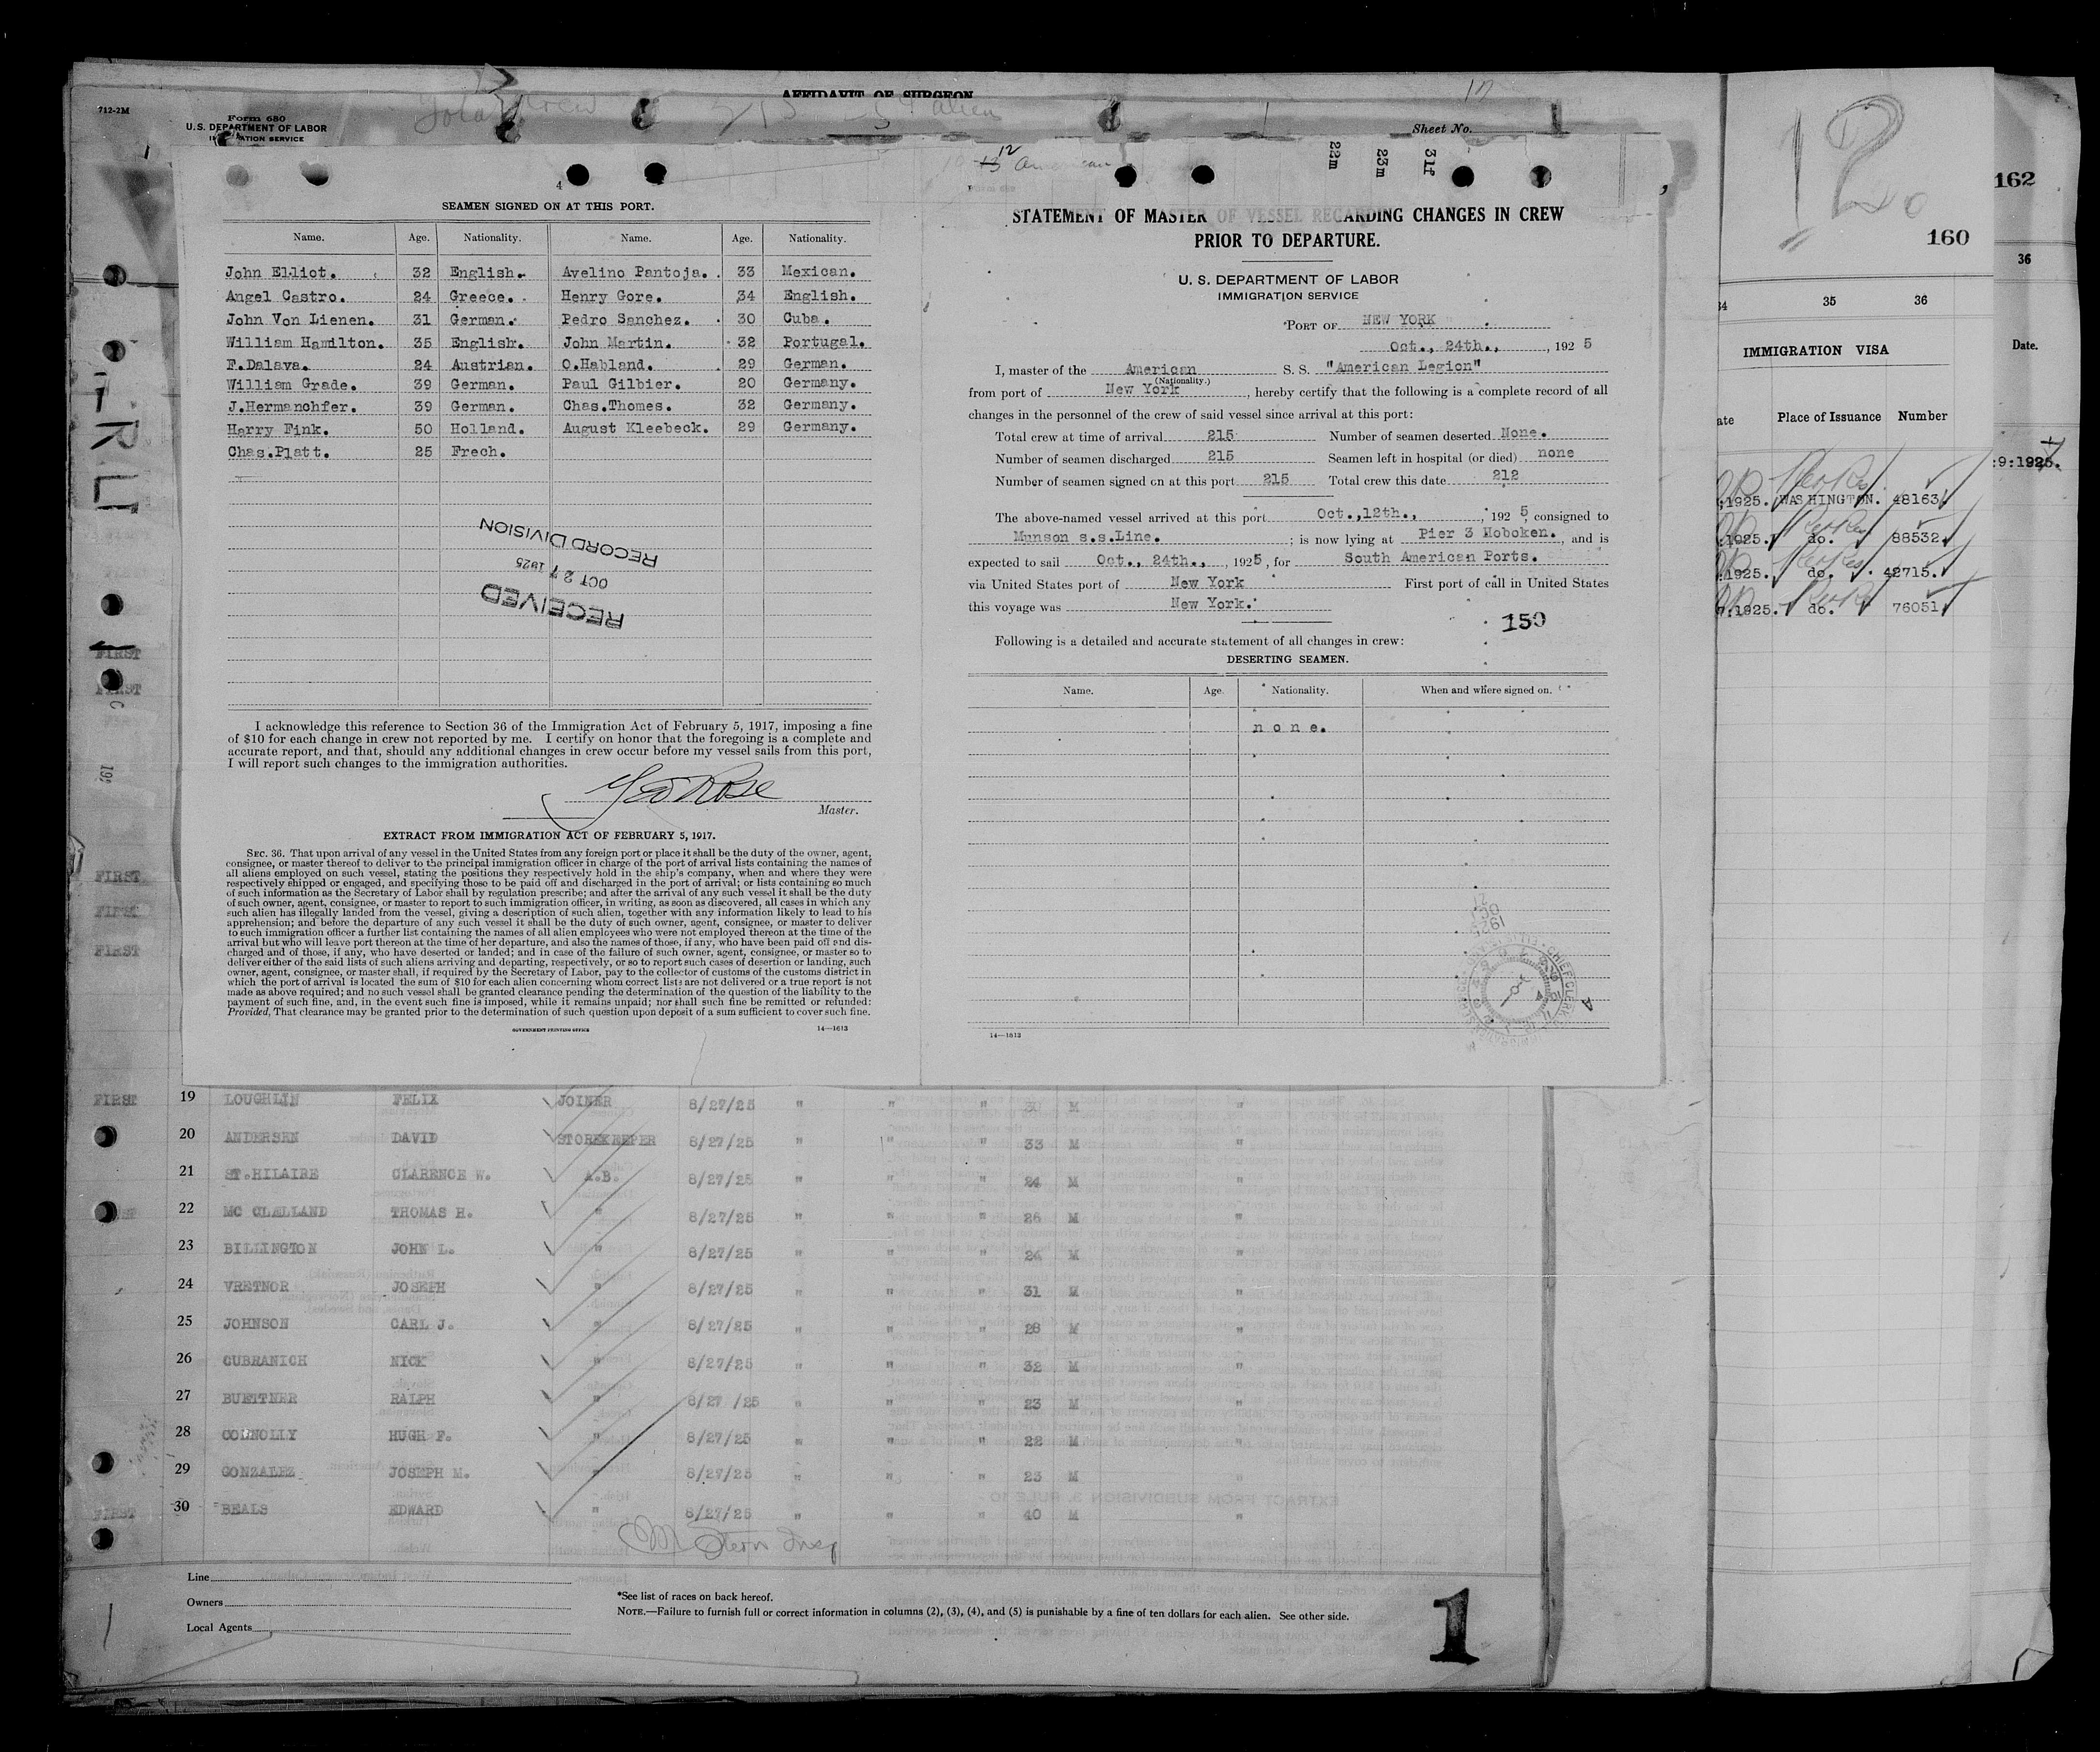 712-2M
Form 680
U.S. DEPARTMENT OF LABOR
AFFIDAVIT OF SURGEON
Sheet No.
4
SEAMEN SIGNED ON AT THIS PORT.
Name. Age. Nationality. Name. Age. Nationality.
John Elliot. 32 English. Avelino Pantoja. 33 Mexican.
Angel Castro. 24 Greece. Henry Gore. 34 English.
John Von Lienen. 31 German. Pedro Sanchez. 30 Cuba.
William Hamilton. 35 English. John Martin. 32 Portugal.
F.Dalava. 24 Austrian. O.Habland. 29 German.
William Grade. 39 German. Paul Gilbier. 20 Germany.
J.Hermanchfer. 39 German. Chas.Thomes. 32 Germany.
Harry Fink. 50 Holland. August Kleebeck. 29 Germany.
Chas.Platt. 25 Frech.
RECEIVED
OCT 27 1925
RECORD DIVISION
I acknowledge this reference to Section 36 of the Immigration Act of February 5, 1917, imposing a fine
of $10 for each change in crew not reported by me. I certify on honor that the foregoing is a complete and
accurate report, and that, should any additional changes in crew occur before my vessel sails from this port,
I will report such changes to the immigration authorities.
Geo Rose
Master.
EXTRACT FROM IMMIGRATION ACT OF FEBRUARY 5, 1917.
SEC. 36. That upon arrival of any vessel in the United States from any foreign port or place it shall be the duty of the owner, agent,
consignee, or master thereof to deliver to the principal immigration officer in charge of the port of arrival lists containing the names of
all aliens employed on such vessel, stating the positions they respectively hold in the ship's company, when and where they were
respectively shipped or engaged, and specifying those to be paid off and discharged in the port of arrival; or lists containing so much
of such information as the Secretary of Labor shall by regulation prescribe; and after the arrival of any such vessel it shall be the duty
of such owner, agent, consignee, or master to report to such immigration officer, in writing, as soon as discovered, all cases in which any
such alien has illegally landed from the vessel, giving a description of such alien, together with any information likely to lead to his
apprehension; and before the departure of any such vessel it shall be the duty of such owner, agent, consignee, or master to deliver
to such immigration officer a further list containing the names of all alien employees who were not employed thereon at the time of the
arrival but who will leave port thereon at the time of her departure, and also the names of those, if any, who have been paid off and dis-
charged and of those, if any, who have deserted or landed; and in case of the failure of such owner, agent, consignee, or master so to
deliver either of the said lists of such aliens arriving and departing, respectively, or so to report such cases of desertion or landing, such
owner, agent, consignee, or master shall, if required by the Secretary of Labor, pay to the collector of customs of the customs district in
which the port of arrival is located the sum of $10 for each alien concerning whom correct lists are not delivered or a true report is not
made as above required; and no such vessel shall be granted clearance pending the determination of the question of the liability to the
payment of such fine, and, in the event such fine is imposed, while it remains unpaid; nor shall such fine be remitted or refunded:
Provided, That clearance may be granted prior to the determination of such question upon deposit of a sum sufficient to cover such fine.
GOVERNMENT PRINTING OFFICE 14—1613
12
22m 23m 31f
STATEMENT OF MASTER OF VESSEL REGARDING CHANGES IN CREW
PRIOR TO DEPARTURE.
U. S. DEPARTMENT OF LABOR
IMMIGRATION SERVICE
PORT OF NEW YORK
Oct., 24th., , 192 5
I, master of the American S. S. "American Legion"
(Nationality.)
from port of New York, hereby certify that the following is a complete record of all
changes in the personnel of the crew of said vessel since arrival at this port:
Total crew at time of arrival 215 Number of seamen deserted None.
Number of seamen discharged 215 Seamen left in hospital (or died) none
Number of seamen signed on at this port 215 Total crew this date 212
The above-named vessel arrived at this port Oct.,12th., , 192 5, consigned to
Munson s.s.Line. ; is now lying at Pier 3 Hoboken., and is
expected to sail Oct., 24th., , 1925, for South American Ports.
via United States port of New York First port of call in United States
this voyage was New York.
150
Following is a detailed and accurate statement of all changes in crew:
DESERTING SEAMEN.
Name. Age. Nationality. When and where signed on.
none.
14—1613
162
160
36
34 35 36
IMMIGRATION VISA
Date.
Place of Issuance Number
:9:1925.
:1925. WASHINGTON. 48163
:1925. do. 88532
:1925. do. 42715.
:1925. do. 76051
FIRST
FIRST
FIRST
FIRST
FIRST
FIRST 19 LOUGHLIN FELIX JOINER 8/27/25 " " " 30 M "
20 ANDERSEN DAVID STOREKEEPER 8/27/25 " " " 33 M "
21 ST.HILAIRE CLARENCE W. A.B. 8/27/25 " " " 24 M "
22 MC CLELLAND THOMAS H. " 8/27/25 " " " 26 M "
23 BILLINGTON JOHN L. " 8/27/25 " " " 24 M "
24 VRETNOR JOSEPH " 8/27/25 " " " 31 M "
25 JOHNSON CARL J. " 8/27/25 " " " 28 M "
26 CUBRANICH NICK " 8/27/25 " " " 32 M "
27 BUETTNER RALPH " 8/27 /25 " " " 23 M "
28 CONNOLLY HUGH F. " 8/27/25 " " " 22 M "
29 GONZALEZ JOSEPH M. " 8/27/25 " " " 23 M "
FIRST 30 BEALS EDWARD " 8/27/25 " " " 40 M "
Line
Owners
Local Agents
*See list of races on back hereof.
NOTE.—Failure to furnish full or correct information in columns (2), (3), (4), and (5) is punishable by a fine of ten dollars for each alien. See other side.
1